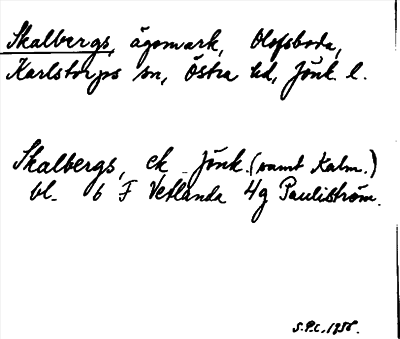 Skalbergs, ägomark, Olofsboda,
Karlstorps sn, Östra hd, Jönk. l.
Skalbergs, ek Jönk. (samt Kalm.)
bl. 6 F Vetlanda 4g Pauliström.
S.P.C. 1958.